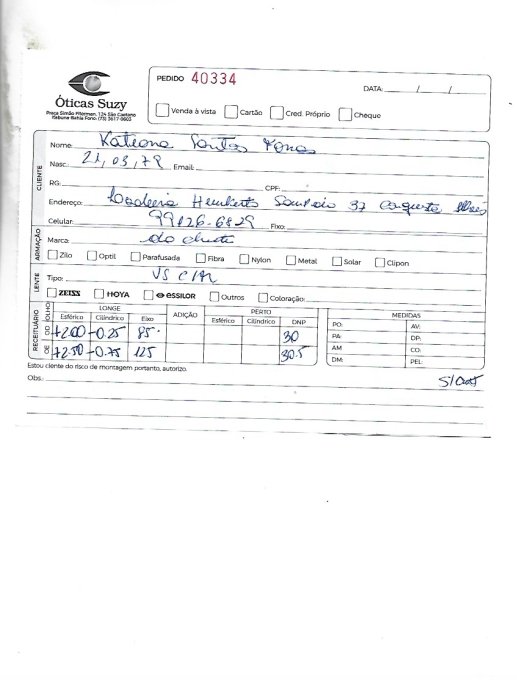 PEDIDO 40334
DATA: / /
Óticas Suzy
Praça Simão Fiterman, 124 São Caetano
Itabuna Bahia Fone: (73) 3617-0603
Venda à vista Cartão Cred. Próprio Cheque
CLIENTE
Nome: Santos
Nasc.: 21,03,79 Email:
RG: CPF:
Endereço: Humberto Sampaio 37
Celular: 99126-6829 Fixo:
ARMAÇÃO
Marca: do cliente
Zilo Optil Parafusada Fibra Nylon Metal Solar Clipon
LENTE
Tipo: VS C/AR
ZEISS HOYA essilor Outros Coloração:
RECEITUÁRIO
OLHO LONGE ADIÇÃO PERTO MEDIDAS
Esférico Cilíndrico Eixo Esférico Cilíndrico DNP
OD +2.00 -0.25 85 30
OE +2.50 -0.75 125 30.5
PO: AV:
PA: DP:
AM CO:
DM: PEL:
Estou ciente do risco de montagem portanto, autorizo.
Obs.: